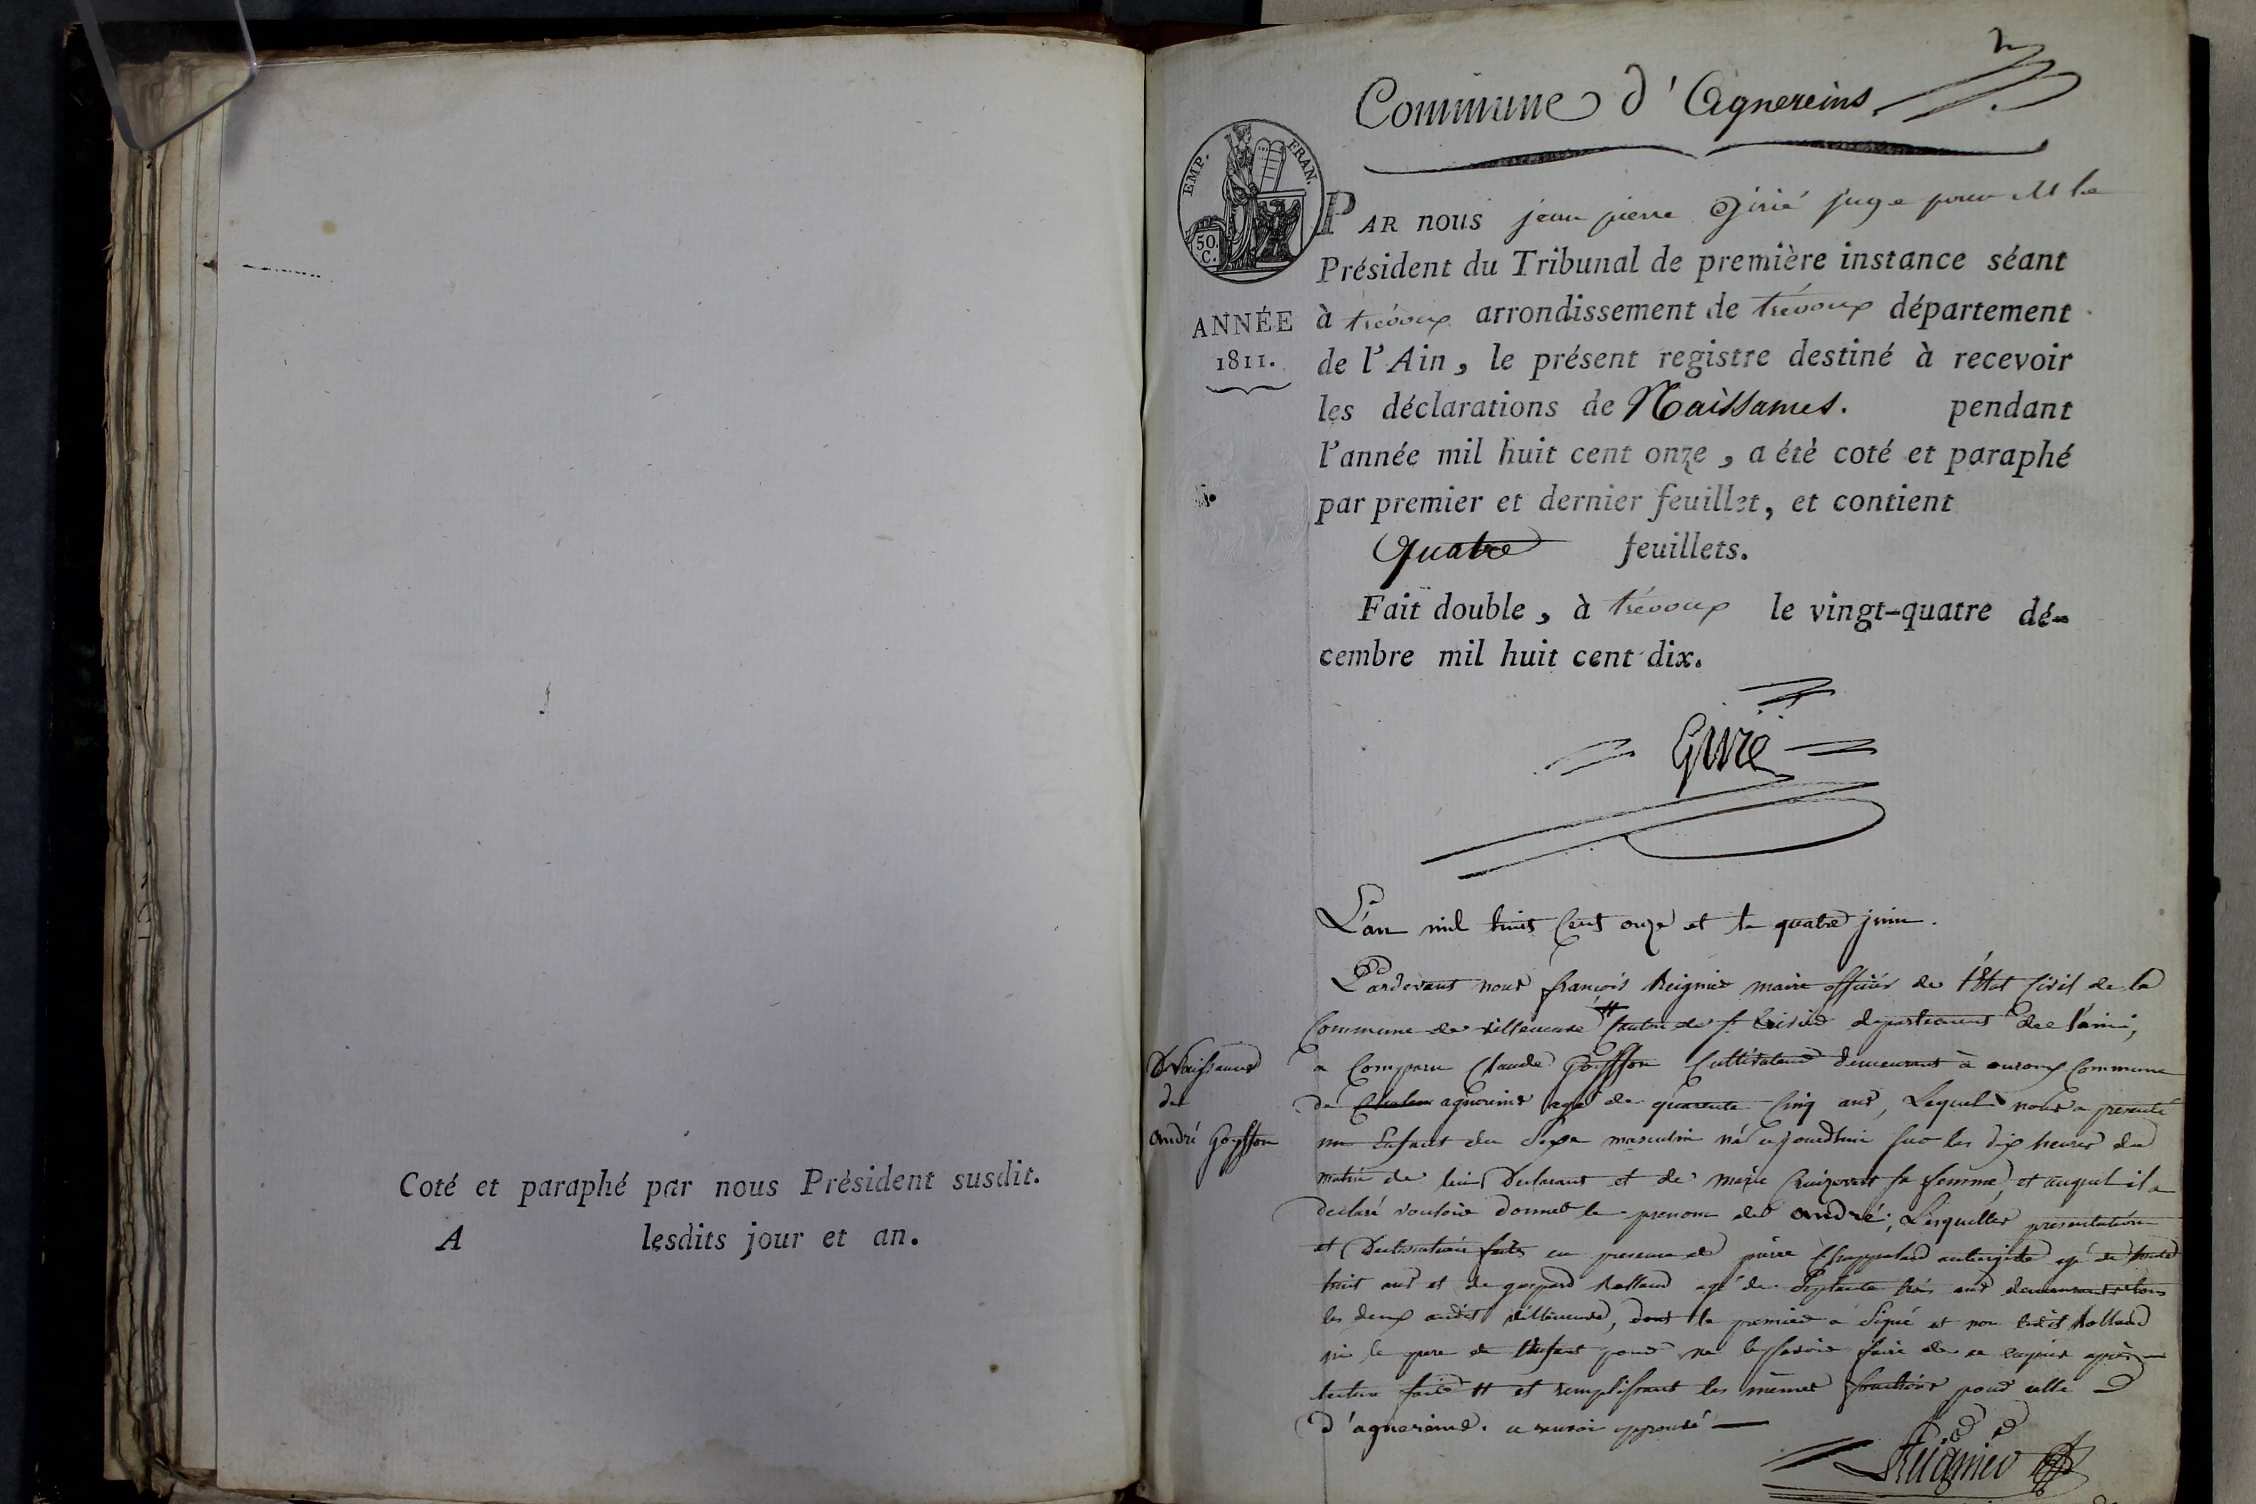 Coté et paraphé par nous Président susdit.
A lesdits jour et an.
Commune d'Agnereins
EMP. FRAN.
50 C.
ANNÉE
1811.
PAR nous jean pierre Girié juge pour M le
Président du Tribunal de première instance séant
à trévoux arrondissement de trévoux département
de l'Ain, le présent registre destiné à recevoir
les déclarations de Naissances. pendant
l'année mil huit cent onze, a été coté et paraphé
par premier et dernier feuillet, et contient
Quatre feuillets.
Fait double, à trévoux le vingt-quatre dé-
cembre mil huit cent dix.
Girié
L'an mil huit Cent onze et le quatre juin.
Pardevant nous françois Reignier maire officier de l'État Civil de la
Commune de villeneuve # Canton de St trivier departement de l'ain,
Naissance
de
andré Goyffon
a Comparu Claude Goyffon Cultivateur demeurant à Commune
de agnereins agé de quarente Cinq ans, Lequel nous a presenté
un Enfant du Sexe masculin né aujourdhui sur les dix heures du
matin de lui Declarant et de marie sa femme, et auquel il a
declaré vouloir donner le prenom de andré, Lesquelles presentation
et Declaration faites en presence de pierre Chappeland agé de trente
huit ans et de gaspard Rolland agé de Septante trois ans demeurants tous
les deux audit villeneuve, dont le premier a Signé et non ledit Rolland
ni le pere de l'Enfant pour ne le savoir faire de ce enquis après
lecture faite # et remplissant les mêmes fonctions pour celle
d'agnereins. approuvé
Reignier